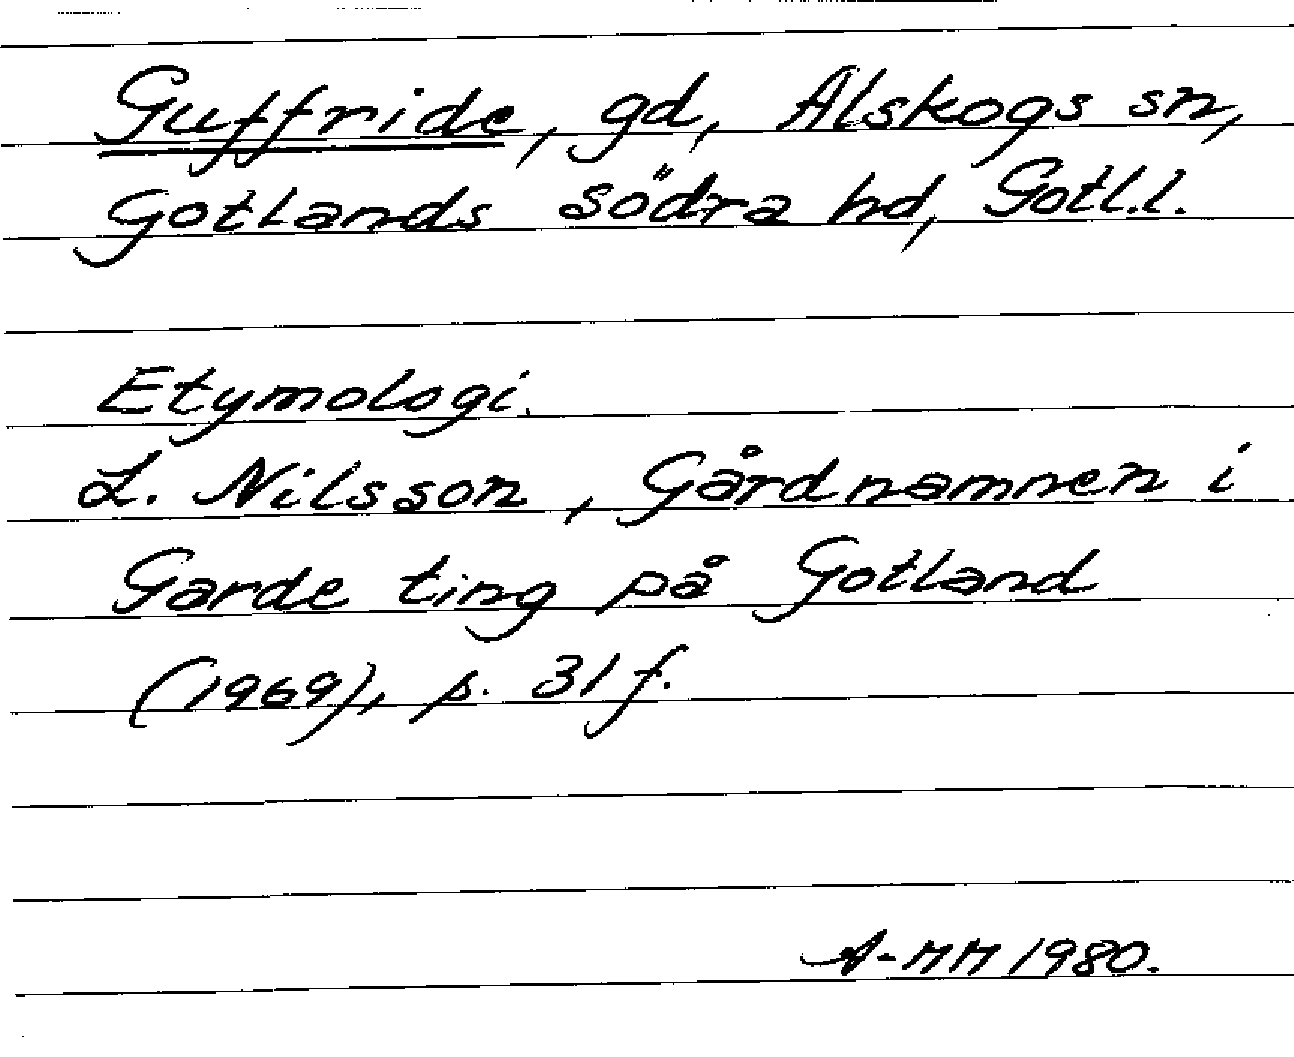 Guffride, gd, Alskogs sn,
Gotlands södra hd, Gotl.l.
Etymologi.
L. Nilsson, Gårdnamnen i
Garde ting på Gotland
(1969), p. 31 f.
A-MM 1980.